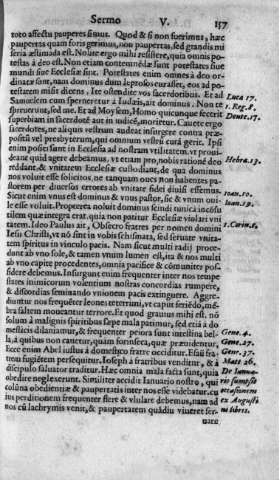 Sermo V. 157
toto affectu pauperes simus. Quod & si non fuerimus, hæc
paupertas quam foris gerimus, non paupertas, sed grandis mi
seria æstimada est. Nolite ergo mihi resistere, quia omnis po-
testas à deo est. Non etiam contemnédæ sunt potestates siue
mundi siue Ecclesiæ sint. Potestates enim omnes à deo or-
dinatæ sunt, nam dominus dum leprosos curasset, eos ad po-
testatem misit dicens, Ite ostendite vos sacerdotibus. Et ad
Samuelem cum sperneretur à Iudæis, ait dominus. Non te
spreuerunt, sed me. Et ad Moysem, Homo quicunque fecerit
superbiam in sacerdoté aut in iudicé, morietur. Cauete ergo
sacerdotes, ne aliquis vestrum audeat insurgere contra præ-
positú vel presbyterum, qui omnium vestrû curâ gerit. Ipsi
enim positi sunt in Ecclesia ad nostram vtilitatem, vt proui-
deant quid agere debeamus, vt etiam pro nobis rationé deo
reddant, & vnitatem Ecclesiæ custodiant, de qua dominus
nos voluit esse solicitos, ne tanquam oues non habentes pa-
storem per diuersos errores ab vnitate fidei diuisi essemus.
Sicut enim vnus est dominus & vnus pastor, sic & vnum oui-
le esse voluit. Propterea noluit dominus scindi tunicá incôsu
tilem quæ integra erat, quia non patitur Ecclesiæ violari vni
tatem. Ideo Paulus ait, Obsecro fratres per nomen domini
Iesu Christi, vt nô sint in vobis schismata, sed seruate vnita-
tem spiritus in vinculo pacis. Nam sicut multi radij proce-
dunt ab vno sole, & tamen vnum lumen est, ita & nos multi
ab vno capite procedentes, omnia pacifice & cómuniter pos-
sidere debemus. Insurgunt enim frequenter inter nos tempe
states inimicorum volentium nostras concordias rumpere,
& discordias seminando vnitionem pacis extinguere. Aggre-
diuntur nos frequêter leones
bra saltem moueantur terrore. Et quod grauius mihi est, nô
solum à malignis spiritibus sæpe mala patimur, sed etiâ à do-
mesticis dilaniamur, & frequenter periora sunt intestina bel-
la, à quibus non cauetur, quàm forinseca, quæ præuidentur,
Ecce enim Abel iustus à domestico fratre occiditur. Esaú fra-
tren fugiêtem persequitur. Ioseph à fratribus venditur, & à
discipulo saluator traditur. Hæc omnia mala facta sunt, quia
obedire neglexerunt. Similiter accidit Ianuario nostro, qui
colúna obedientiæ & paupertatis inter nos esse videbatur. cu
ius perditionem frequenter flere & vlulare debemus, nam ad
nos cû lachrymis venit, & paupertatém quâdiu viueret ser-
uare
Luca 17.
1. Reg. 8.
Deute. 17.
Hebra. 13.
Ioan. 10.
Ioan. 19.
1. Corin. 1.
Gene. 4.
Gene. 27.
Gene. 37.
Matt 26.
De Ianua-
rio sumpsit
occasionem
ex Augusti
ni libris.